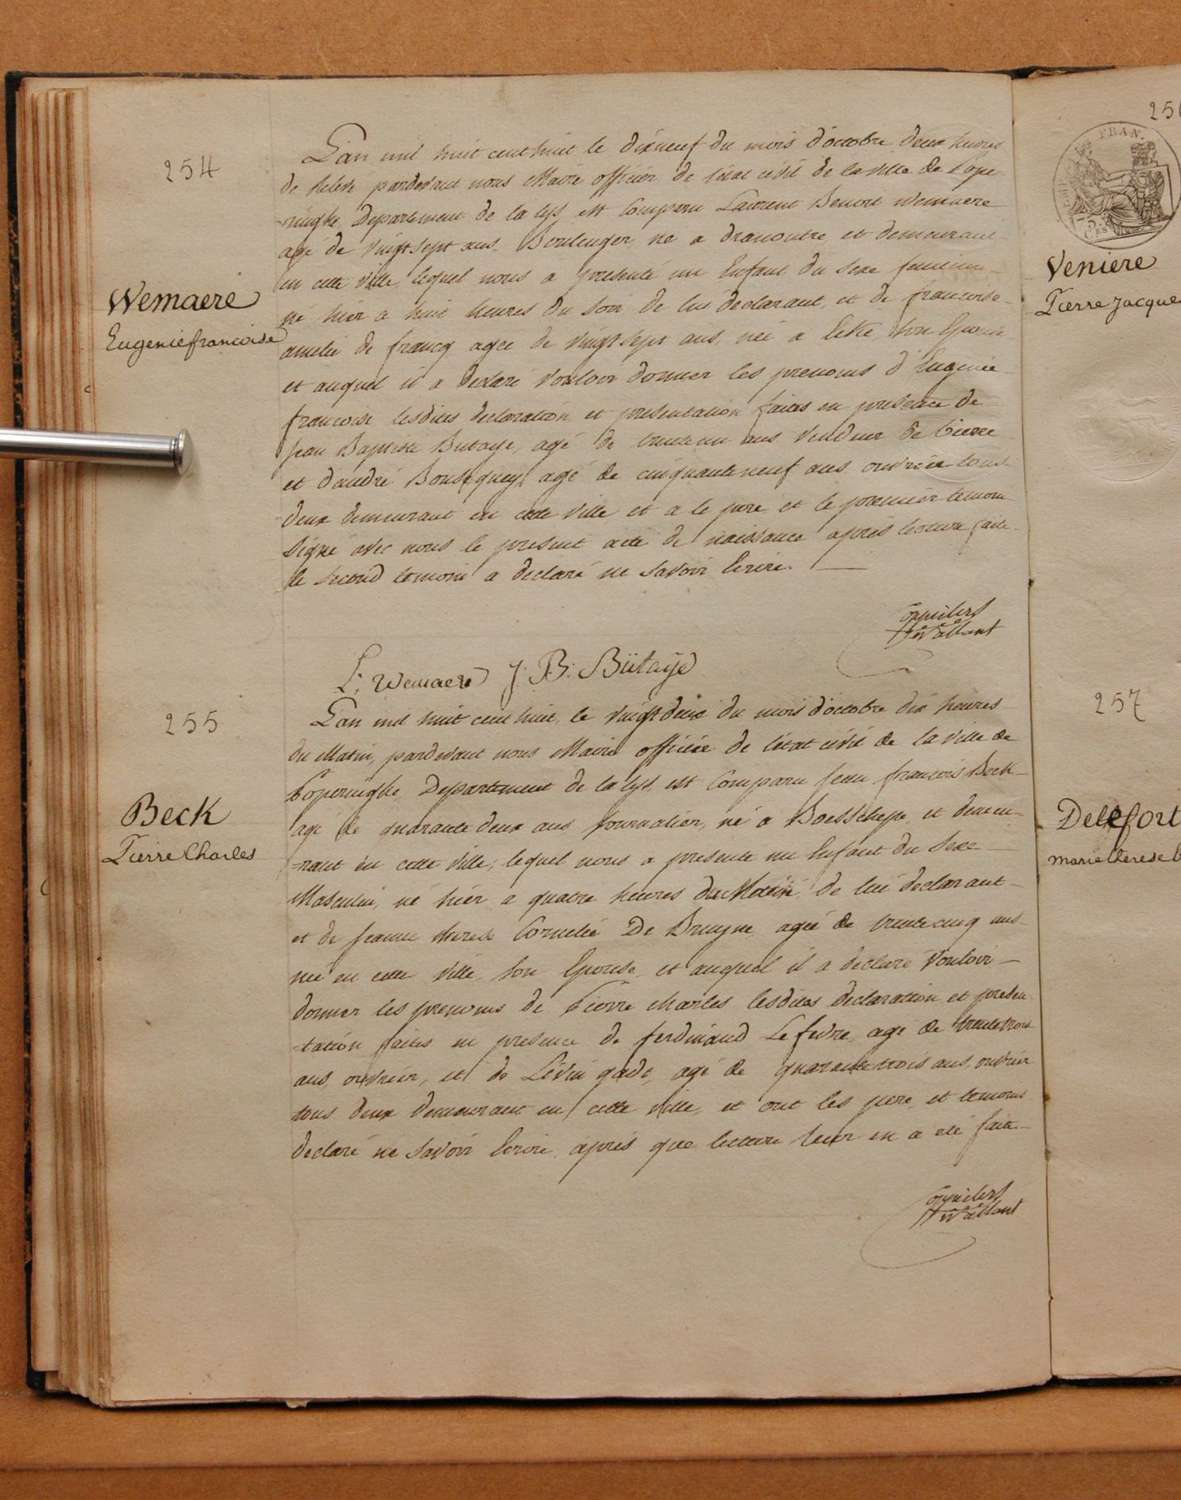 254
L'an mil huit cent huit le dixneuf du mois d'octobre deux heures
de relevé pardevant nous Maire officier de l'état civil de la ville de Pope
-ringhe, Departement de la Lys, est Comparu Laurent Benoit Wemaere
agé de vingt sept ans, Boulenger né a dranoutre et demeurant
en cette ville, lequel nous a presenté un Enfant du sexe feminin
né hier a huit heures du soir de lui declarant, et de francoise
amelie de francq agée de vingt sept ans, née a son Epouse
et auquel il a declaré vouloir donner les prenoms d'Eugenie
francoise lesdites declaration et presentation faites en presence de
jean Baptiste Butaye, agé de trente un ans vendeur de Bierre
et d'andré agé de cinquante neuf ans ouvrier tous
deux demeurant en cette ville et a le pere et le premier temoin
signé avec nous le present acte de naissance après lecture faite
le second temoin a declaré ne savoir Ecrire.
Wemaere
Eugenie francoise
L: Wemaere J: B: Bütaije
255
L'an mil huit cent huit, le vingt deux du mois d'octobre dix heures
du Matin, pardevant nous Maire officier de l'état civil de la ville de
Poperinghe Departement de la Lys, est Comparu jean francois Beck
agé de quarante deux ans journalier, né a et demeu-
-rant en cette ville, lequel nous a presenté un Enfant du sexe
Masculin, né hier a quatre heures du Matin, de lui declarant
et de jeanne therese Cornelie De Bruyne agée de trente cinq ans
née en cette ville son Epouse, et auquel il a declaré vouloir
donner les prenoms de Pierre charles lesdites declaration et presen
-tation faites en presence de ferdinand Lefevre, agé de trente trois
ans, ouvrier, et de Lévin gade, agé de quarante trois ans, ouvrier
tous deux demeurant en cette ville, et ont les pere et temoins
declaré ne savoir Ecrire, après que lecture leur en a été faite
Beck
Pierre Charles
FRAN.
Veniere
Pierre Jacque
257
Delefort
marie therese b